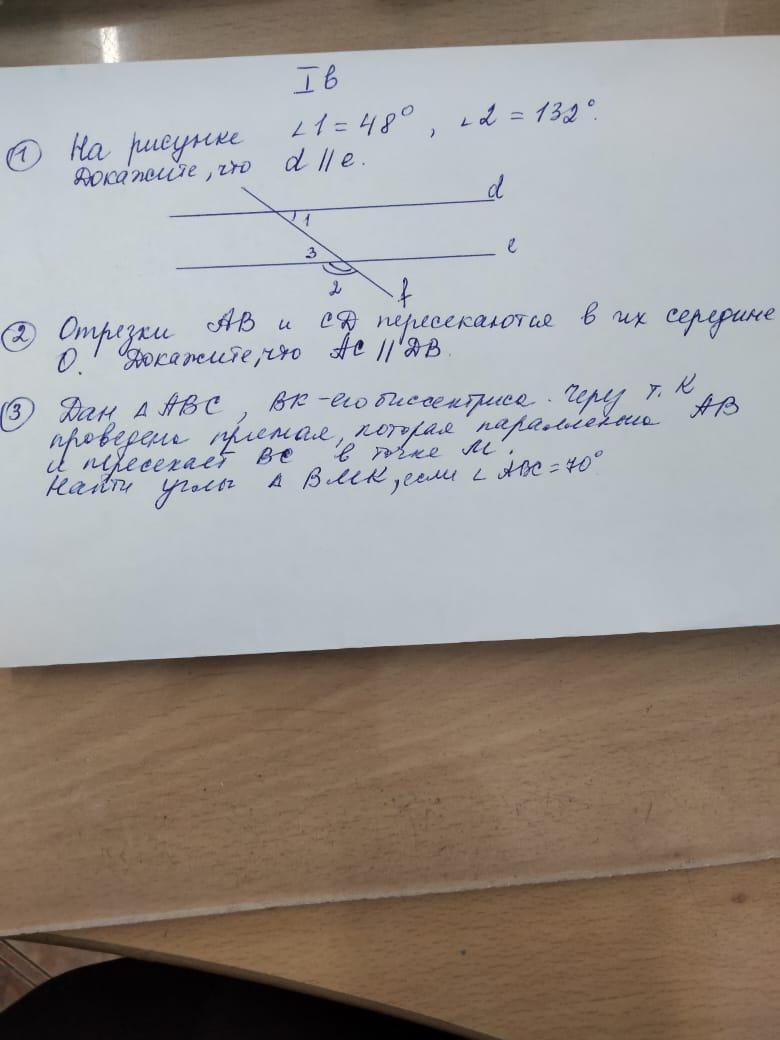 I в
① На рисунке ∠1 = 48°, ∠2 = 132°.
Докажите, что d || e.
d
1
3
e
2
f
② Отрезки АВ и СД пересекаются в их середине
О. Докажите, что АС || DB.
③ Дан Δ АВС, ВК - его биссектриса. Через т. К
проведена прямая, которая параллельна АВ
и пересекает ВС в точке М.
Найти углы Δ ВМК, если ∠ АВС = 70°